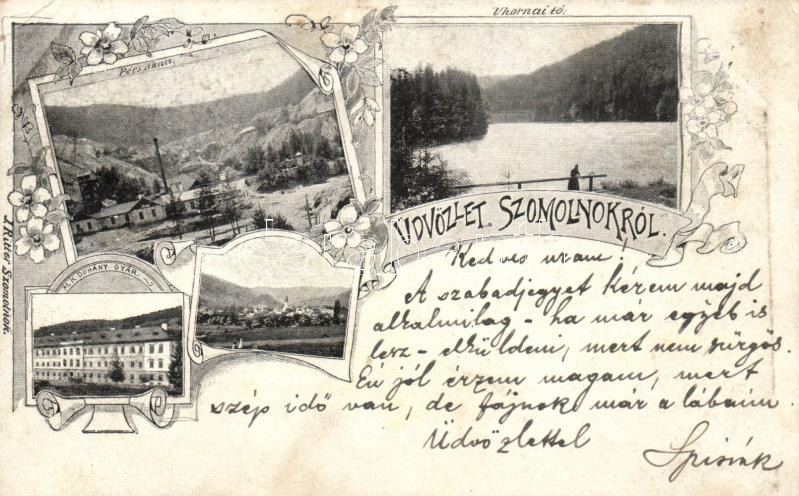 Uhornai tó.
Pecs akna.
J. Ritter Szomolnok.
ÜDVÖZLET SZOMOLNOKRÓL.
M.K. DOHÁNY GYÁR.
Kedves uram!
A szabadjegyet kérem majd
alkalmilag - ha már egyéb is
lesz - elküldeni, mert nem sürgős.
Én jól érzem magam, mert
szép idő van, de fájnok már a lábaim.
Üdvözlettel